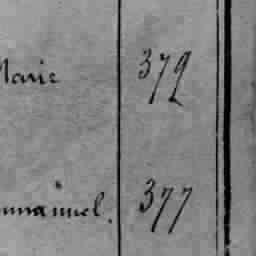 Marie 379
mmanuel. 377